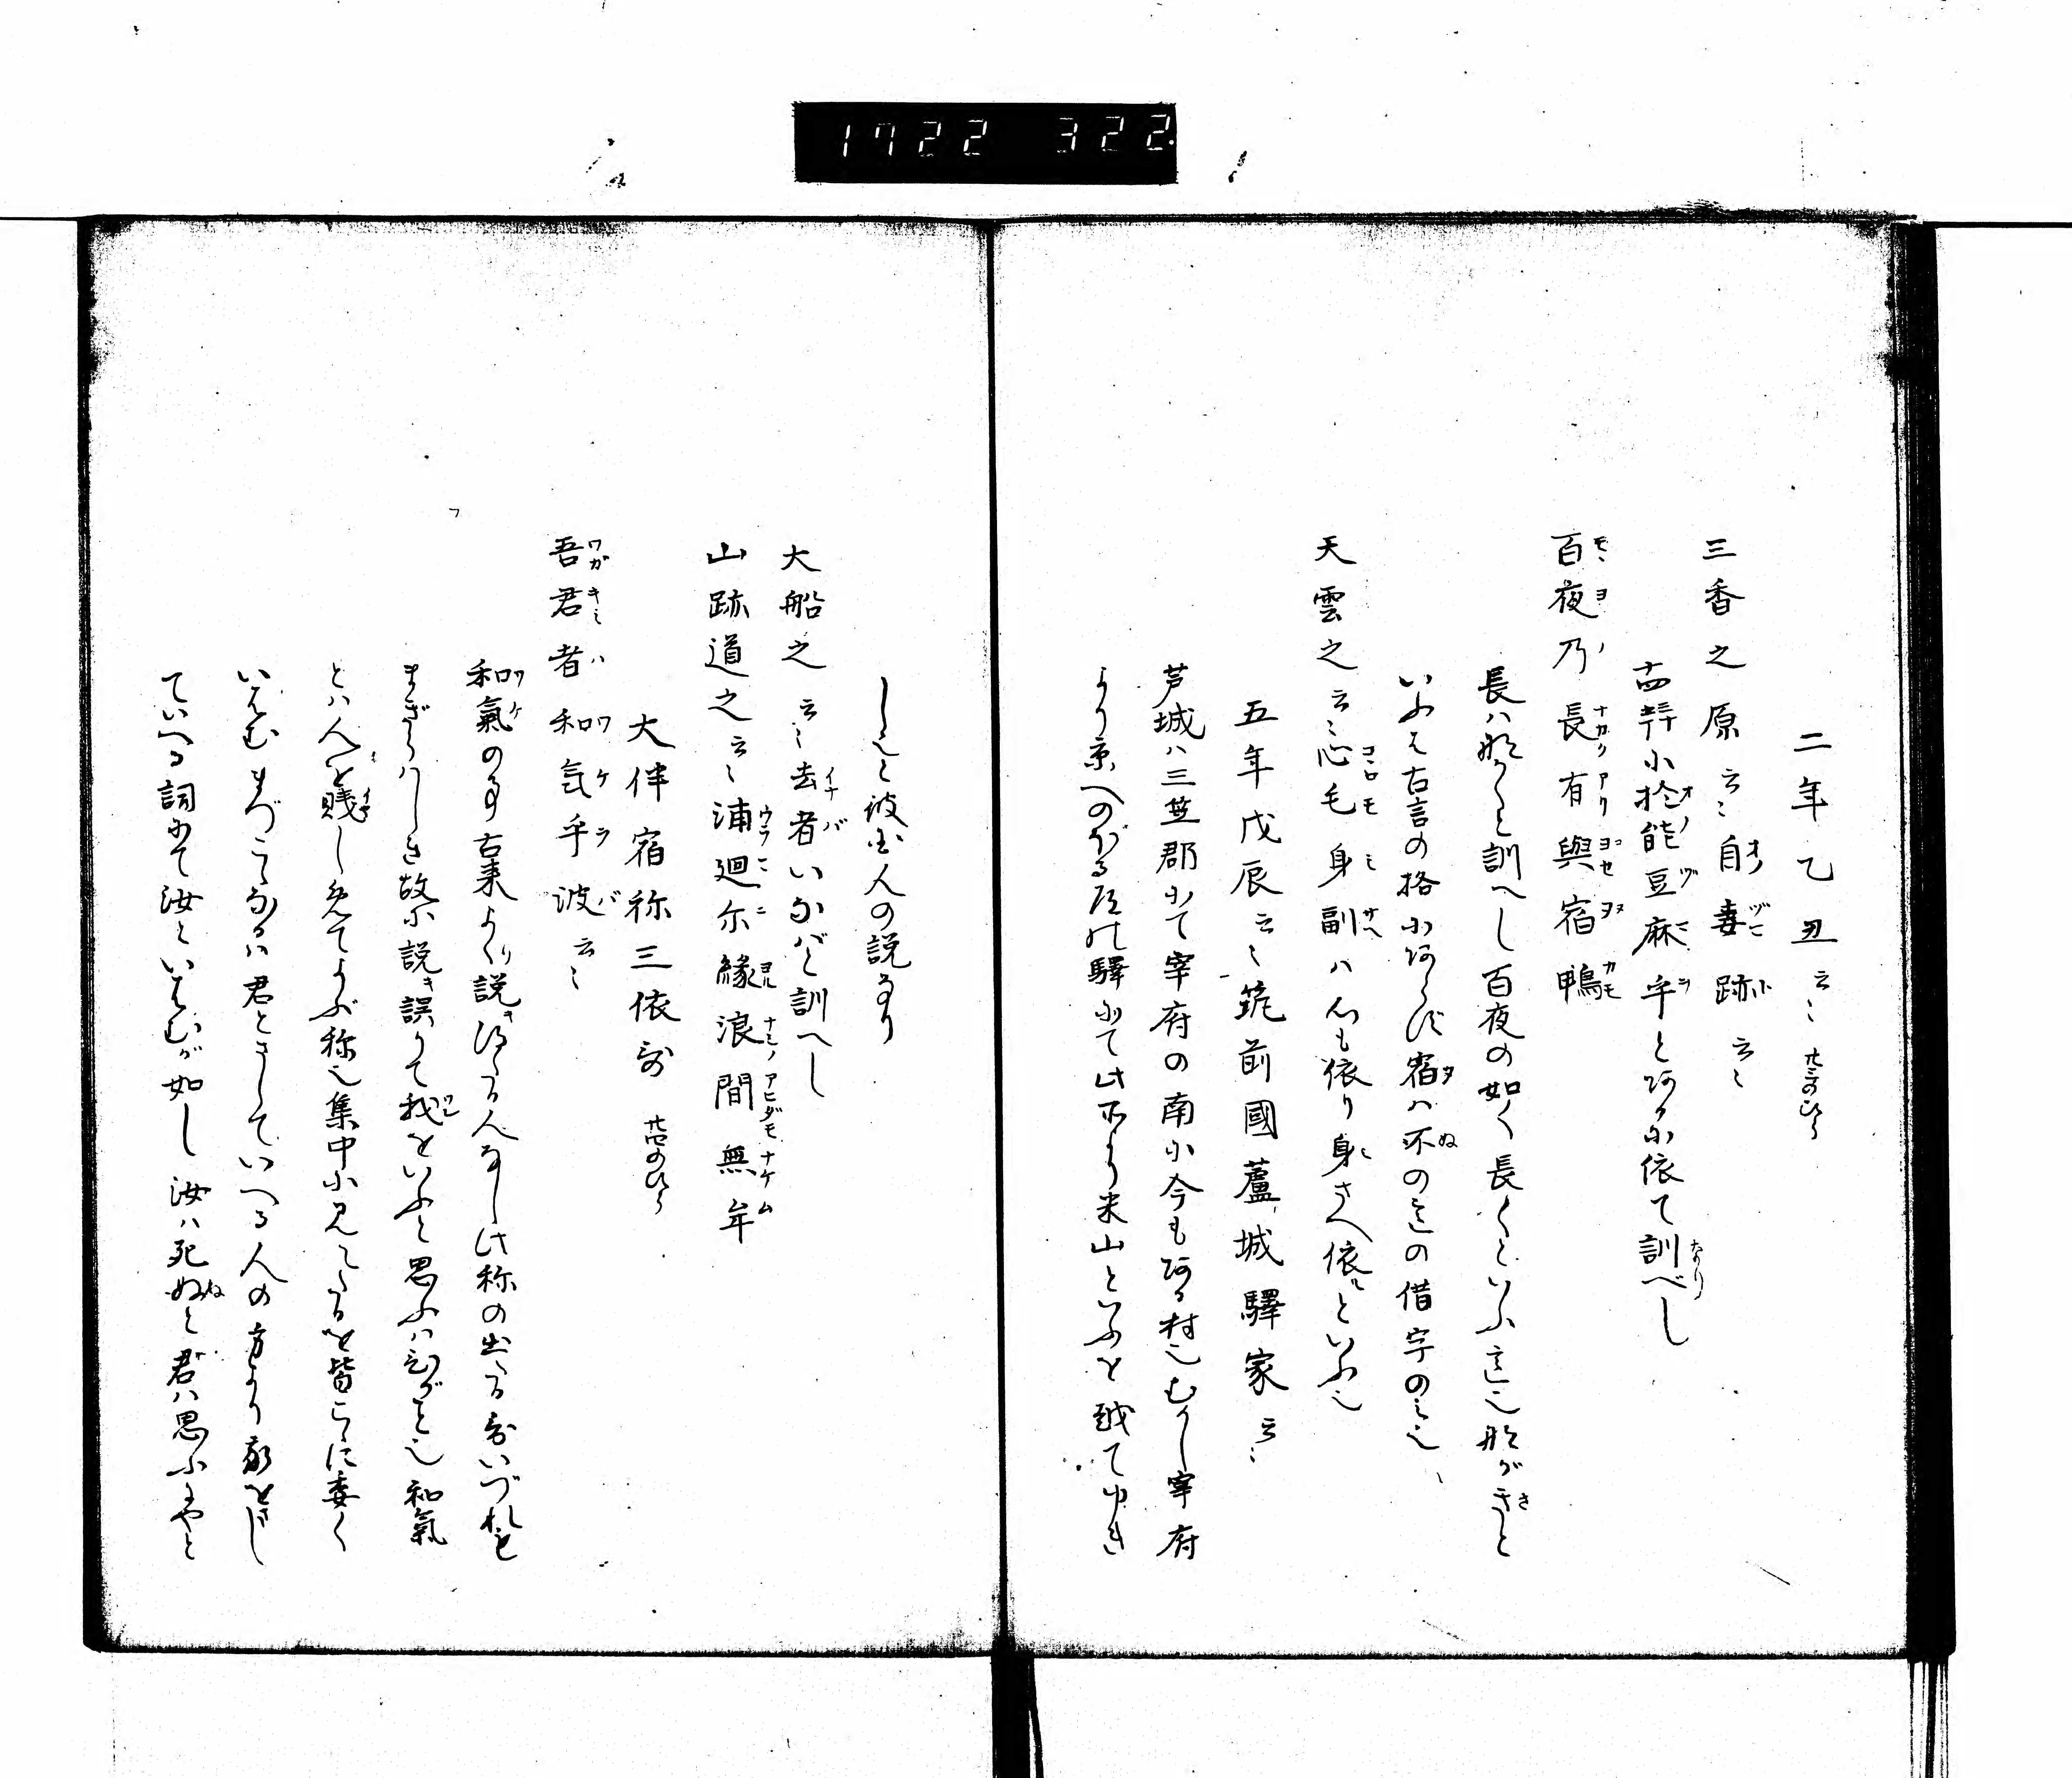 1722 322
二年乙丑云々 廿三のひら
三香之原云々自妻跡云々
十四巻に於能豆麻乎とあるに依て訓べし
百夜乃長有與宿鴨
長ハ那がくと訓へし百夜の如く長くといふ意也那がきと
いふは古言の格にあらず宿ハ不の意の借字のミ也
天雲之云々心毛身副ハ心も依り身さへ依てといふ也
五年戊辰云々筑前國蘆城驛家云々
芦城ハ三笠郡にて宰府の南に今もある村也むかし宰府
より京へのぼる道の驛にて此所より米山といふを越てゆき
しと彼国人の説なり
大船之云々去者いなばと訓へし
山跡道之云々浦廻尓縁浪間無牟
大伴宿祢三依哥 廿四のひら
吾君者和気乎波云々
和氣の事古来よく説き得たる人なし此称の出たる哥いづれも
まぎらハしき故に説き誤りて我をいふと思ふハひがこと也和氣
とハ人を賤しめてよぶ称也集中に見えたるを皆こゝに委く
いはむまづこゝなるハ君とさしていへる人の方より我をさし
ていへる詞にて汝といはむが如し汝ハ死ぬと君ハ思ふやと